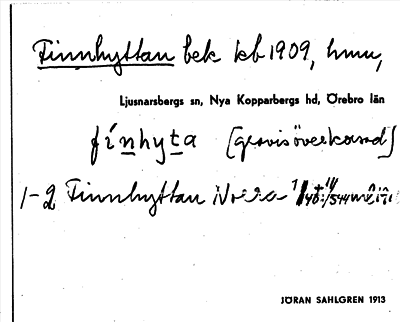 Finnhyttan bek kb 1909, hmn,
Ljusnarsbergs sn, Nya Kopparbergs hd, Örebro län
fínhyta [gravis överkorsad]
1-2 Finnhyttan Norra
JÖRAN SAHLGREN 1913